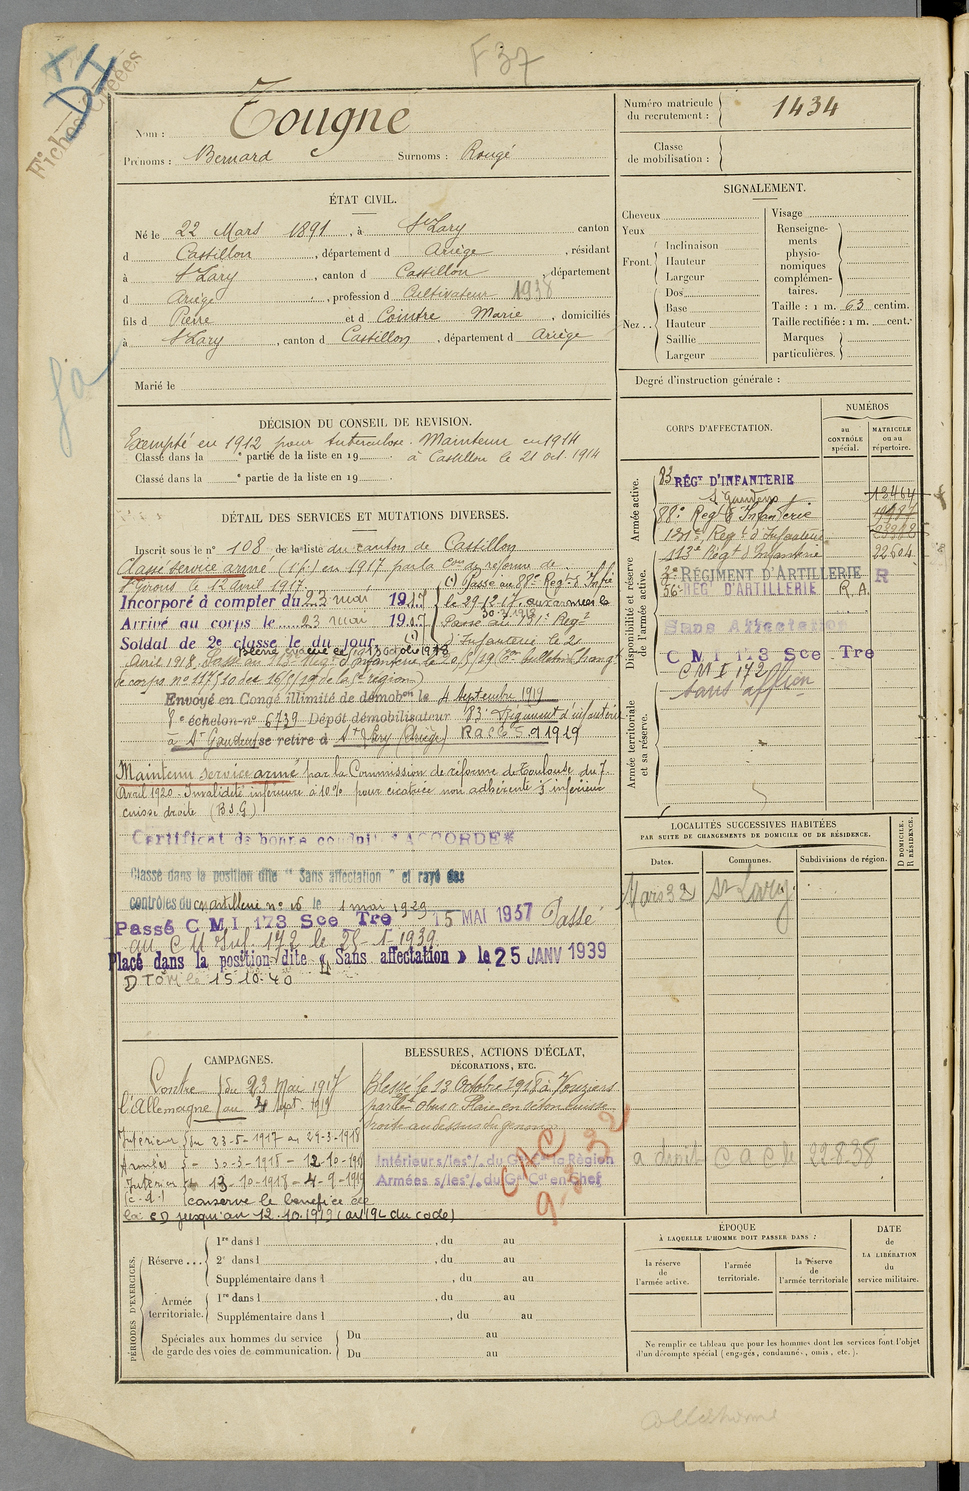 F 37
Fiches Créées
DI
Nom : Tougne
Prénoms : Bernard Surnoms : Rougé
Numéro matricule du recrutement : 1434
Classe de mobilisation :
ÉTAT CIVIL.
Né le 22 Mars 1891, à St Lary canton
d Castillon, département d Ariège, résidant
à St Lary, canton d Castillon, département
d Ariège, profession d Cultivateur 1938
fils d Pierre et d Cointre Marie, domiciliés
à St Lary, canton d Castillon, département d Ariège
Marié le
SIGNALEMENT.
Cheveux
Yeux
Front. Inclinaison
Hauteur
Largeur
Nez .. Dos
Base
Hauteur
Saillie
Largeur
Visage
Renseignements physionomiques complémentaires.
Taille : 1 m. 63 centim.
Taille rectifiée : 1 m. cent.
Marques particulières.
Degré d'instruction générale :
DÉCISION DU CONSEIL DE REVISION.
Exempté en 1912 pour tuberculose. Maintenu en 1914
Classé dans la e partie de la liste en 19 . à Castillon le 21 oct. 1914
Classé dans la e partie de la liste en 19 .
CORPS D'AFFECTATION.
NUMÉROS
au CONTRÔLE spécial.
MATRICULE ou au répertoire.
Armée active.
83 RÉGT D'INFANTERIE
St Gaudens 13464
88e Regt d'Infanterie
131e Regt d'Infanterie
113e Regt d'Infanterie 22604
Disponibilité et réserve de l'armée active.
2e RÉGIMENT D'ARTILLERIE R
56e REGT D'ARTILLERIE R.A.
Sans Affectation
C M I 173 Sce Tre
C M I 172
Sans affon
Armée territoriale et sa réserve.
DÉTAIL DES SERVICES ET MUTATIONS DIVERSES.
Inscrit sous le n° 108 de la liste du canton de Castillon
Classé service armé (1 p.) en 1917 par la Con de réforme de
St Girons le 12 avril 1917.
Incorporé à compter du 23 mai 1917
Arrivé au corps le 23 mai 1917
Soldat de 2e classe le du jour
(1) Passé au 88e Regt d'Infie
le 29-12-17. aux armées le
30.3.1918
Passé au 131e Regt
d'Infanterie le 21
Avril 1918. Passé au 113e Regt d'Infanterie le 20/5/29
de corps n° 117/10 des 16/5/29 de la 5e région)
Envoyé en Congé illimité de démobon le 4 septembre 1919
8e échelon n° 6739 Dépôt démobilisateur 83e Régiment d'infanterie
à St Gaudens se retire à St Lary (Ariège)
Maintenu service armé par la Commission de réforme de Toulouse du 7
Avril 1920. Invalidité inférieure à 10% pour cicatrice non adhérente 1/3 inférieur
cuisse droite (B.S.G.)
Certificat de bonne conduite "ACCORDE"
Classé dans la position dite "Sans affectation" et rayé des
contrôles du C. artillerie n° 16 le 1 mai 1929
Passé C M I 173 Sce Tre 15 MAI 1937 Passé
au C M Inf. 172 le 25-1-1939.
Placé dans la position dite « Sans affectation » le 25 JANV 1939
D T O M le 15 10.40
LOCALITÉS SUCCESSIVES HABITÉES
PAR SUITE DE CHANGEMENTS DE DOMICILE OU DE RÉSIDENCE.
Dates.
Communes.
Subdivisions de région.
D DOMICILE. R RÉSIDENCE.
Mars 32 St Lary
a droit C a C le 22 8 38
CAMPAGNES.
Contre l'Allemagne du 23 Mai 1917 au 4 Sept. 1919
Intérieur du 23-5-1917 au 29-3-1918
Armées - 30-3-1918 - 12-10-1918
Intérieur 13-10-1918 - 4-9-1919
(c.d.) conserve le bénéfice de
la CD jusqu'au 12.10.1919 (art 19L du code)
BLESSURES, ACTIONS D'ÉCLAT,
DÉCORATIONS, ETC.
Blessé le 13 Octobre 1918 à Vouziers
par éclat obus « Plaie en séton cuisse
droite au dessus du genou »
Intérieur s/les °/. du Gal Cdt la Région
Armées s/les °/. du Gal Cdt en Chef
CAC
9.3.32
PÉRIODES D'EXERCICES.
Réserve ... 1re dans l , du au
2e dans l , du au
Supplémentaire dans l , du au
Armée territoriale. 1re dans l , du au
Supplémentaire dans l , du au
Spéciales aux hommes du service de garde des voies de communication. Du au
Du au
ÉPOQUE
À LAQUELLE L'HOMME DOIT PASSER DANS :
la réserve de l'armée active.
l'armée territoriale.
la réserve de l'armée territoriale
DATE de LA LIBÉRATION du service militaire.
Ne remplir ce tableau que pour les hommes dont les services font l'objet
d'un décompte spécial (engagés, condamnés, omis, etc.).